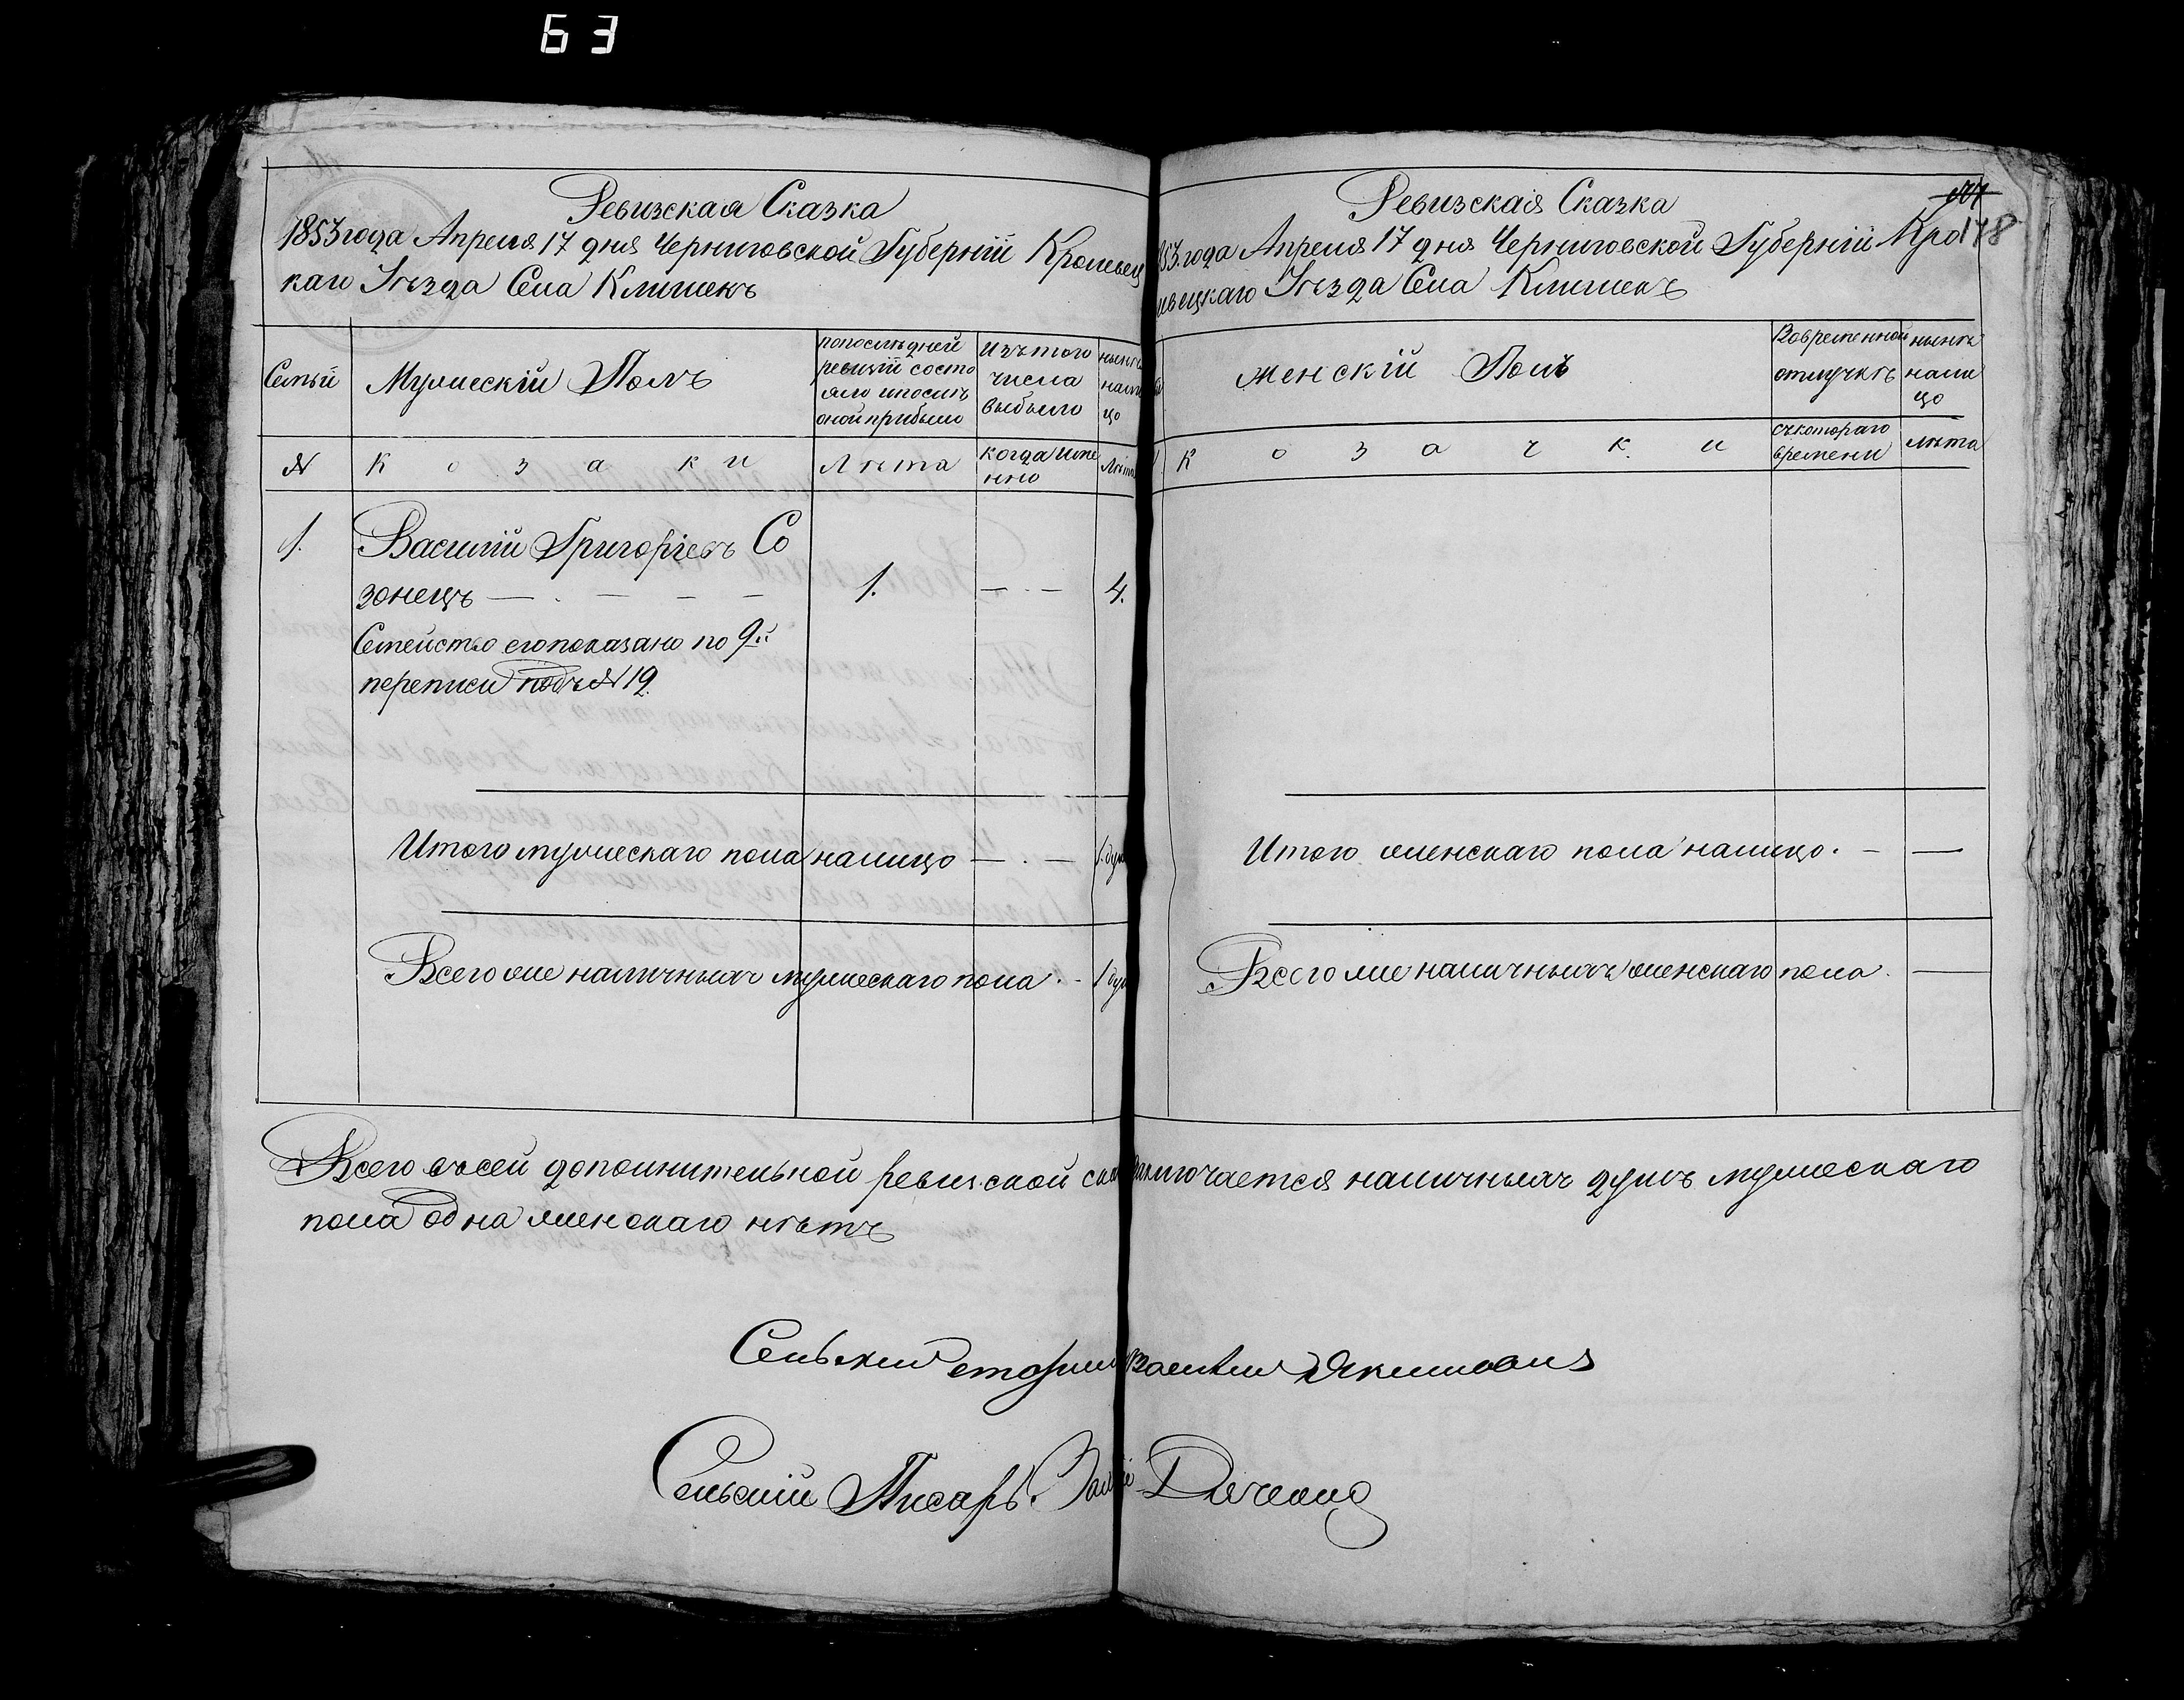 63
Ревизская Сказка
1853 года Апреля 17 дня Черниговской Губерніи Кролевец
каго Уѣзда Села Клишекъ
Семьи
Мужескій Полъ
по послѣдней
ревизіи состо
яло и послѣ
оной прибыло
Изъ того
числа
выбыло
нынѣ
нали
цо
№
К о з а к и
Лѣта
когда име
нно
Лѣта
1.
Василій Григорьевъ Со
зонецъ — . — — —
1.
— . —
4.
Семейство его показано по 9й
переписи подъ № 19.
Итого мужескаго пола налицо — . —
1 душ
Всего же наличныхъ мужескаго пола . -
1 душ
178
Ревизская Сказка
1853 года Апреля 17 дня Черниговской Губерніи Кро
левецкаго Уѣзда Села Клишекъ
Женскій Полъ
Во временной
отлучкѣ
нынѣ
нали
цо
К о з а ч к и
съ котораго
времени
лѣта
Итого женскаго пола налицо . — —
Всего же наличныхъ женскаго пола . —
Всего въ сей дополнительной ревизской заключается наличныхъ душъ мужескаго
пола одна женскаго нѣтъ
Сельский Василий Якимович
Сельскій Писарь